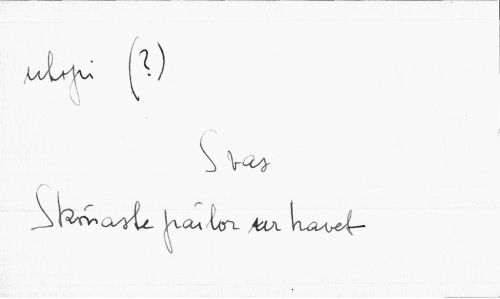 utopi (?)
Svas
Skönaste pärlor ur havet